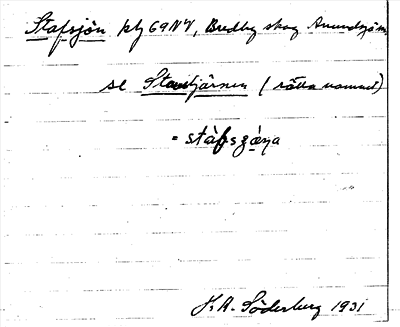 Stafsjön på 69NV, Bredby skog Anundsjö sn
se Stavtjärnen (rätta namnet)
= stàfszǻṇa
K.A. Söderberg 1931